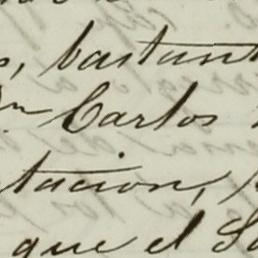 , bastant
Dn Carlos
tacion,
que el So